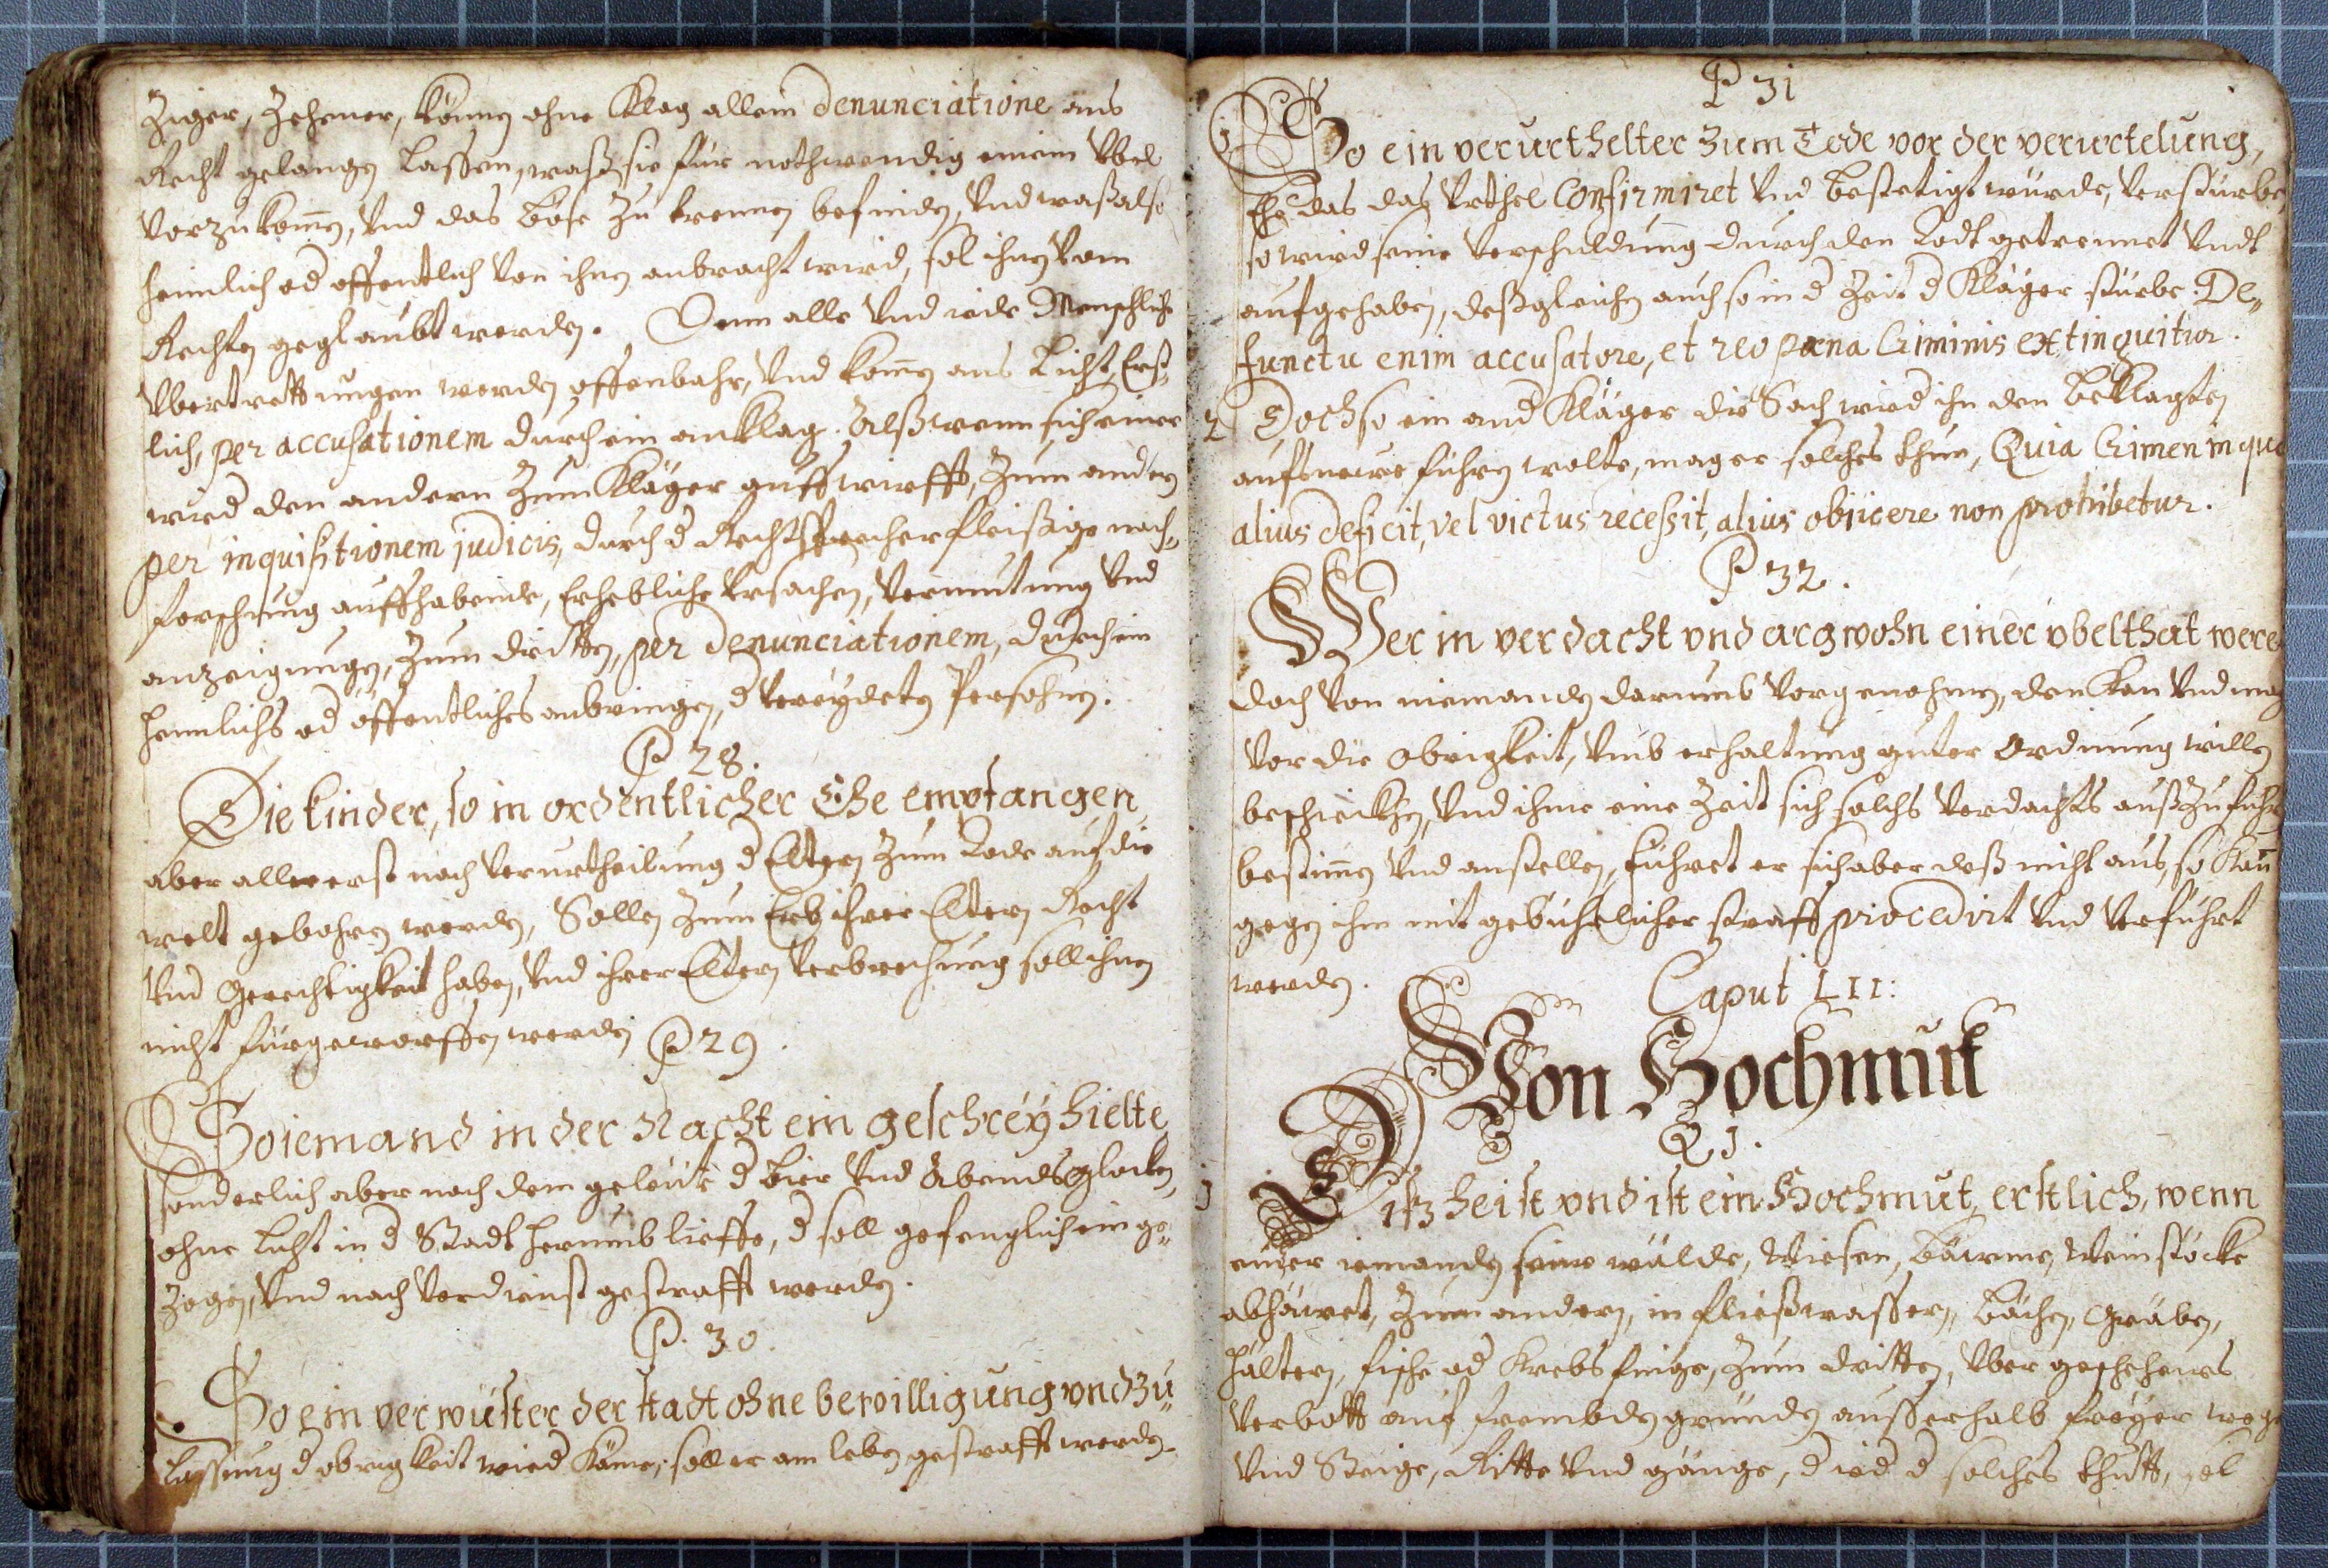 Ziger, Zehener, könne ohne Klag allein denunciatione ans
Recht gelangen lassen, waß sie für nothwendig einem Vbel
Vorzukomen, Vnd das böse zu trennen befinden, Vnd waß also
heimlich od offentlich von ihnen anbracht wird, sol ihnen vom
Rechten geglaubt werden. Denn alle Vnd iede Menschliche
Vbertrettungen werden offenbahr, Vnd komen ans Licht, Erst„
lich, per accusationem durch ein anklag. Alß wenn sich einer
wird den andern zum Kläger auffwirfft, zum andern
per inquisitionem judicis, durch d Rechtsprecher fleissige nach„
forschung auff habende, Erhebliche Vrsachen, Vermutung Vnd
anzeigungen, zum dritten, per denunciationem, durch ein
heimlichs od öffentliches anbringen, d Vereydeten Persohnen.
P 28.
Die kinder, so in ordentlicher Ehe empfangen,
aber aller erst nach Verurtheilung d Eltern zum Tode auf die
welt gebohren werden, Sollen zum Erb ihrer Eltern Recht
Vnd Gerechtigkeit haben, Vnd ihrer Eltern Verbrechung soll ihnen
nicht fürgeworffen werden
P 29.
So iemand in der Nacht ein geschreÿ hielte
sonderlich aber nach dem geleüt d Bier Vnd Abendsglocken,
ohne Licht in d Stadt herumb lieffe, d soll gefenglich einge„
zogen, Vnd nach Verdienst gestrafft werden.
P. 30.
So ein verwüster der stadt ohne bewilligung vnd zu„
lassung d obrigkeit wied käme, soll er am leben gestrafft werden.
P 31
1 So ein verurthelter zum Tode vor der verurtelung,
Ehe das das Vrthel Confirmiret Vnd bestetigt würde, Verstürbe,
so wird seine Verschuldung durch den Todt getrennet Vndt
aufgehaben, deßgleichen auch so in d Zeit d Kläger stürbe. De„
functu enim accusatore, et reo pœna Criminis extinguitur.
2 Doch so ein and Kläger die Sach wied ihn den beklagten
aufs newe führen wolte, mag er solches thun, Quia Crimen in quo
alius deficit, vel victus recessit, alius objicere non prohibetur.
P 32.
Wer in verdacht vnd argwohn einer vbelthat were
doch Von niemanden darumb Vorgenohmen, den kan Vnd mag
Vor die obrigkeit, Vmb erhaltung guter ordnung willen
beschicken, Vnd ihme eine Zeit sich solchs Verdachts außzuführen
bestimen Vnd anstellen, führet er sich aber deß nicht aus, so kan
gegen ihm mit gebührlicher straff procedirt Vnd Verführt
werden.
Caput LII:
Von Hochmut
Q 1.
1 Diß heist vnd ist ein Hochmut, erstlich, wenn
einer iemanden seine wälde, Wiesen, bäwme, Weinstöcke
abhawet, zum andern, in fließwassern, bächen, Gräben,
hältern, fische od Krebs finge, zum dritten, Vber geschehenes
Verbott auf frembden gründen ausserhalb freyer wege
Vnd Steige, Ritte Vnd gänge, d ied d solches thutt, sol